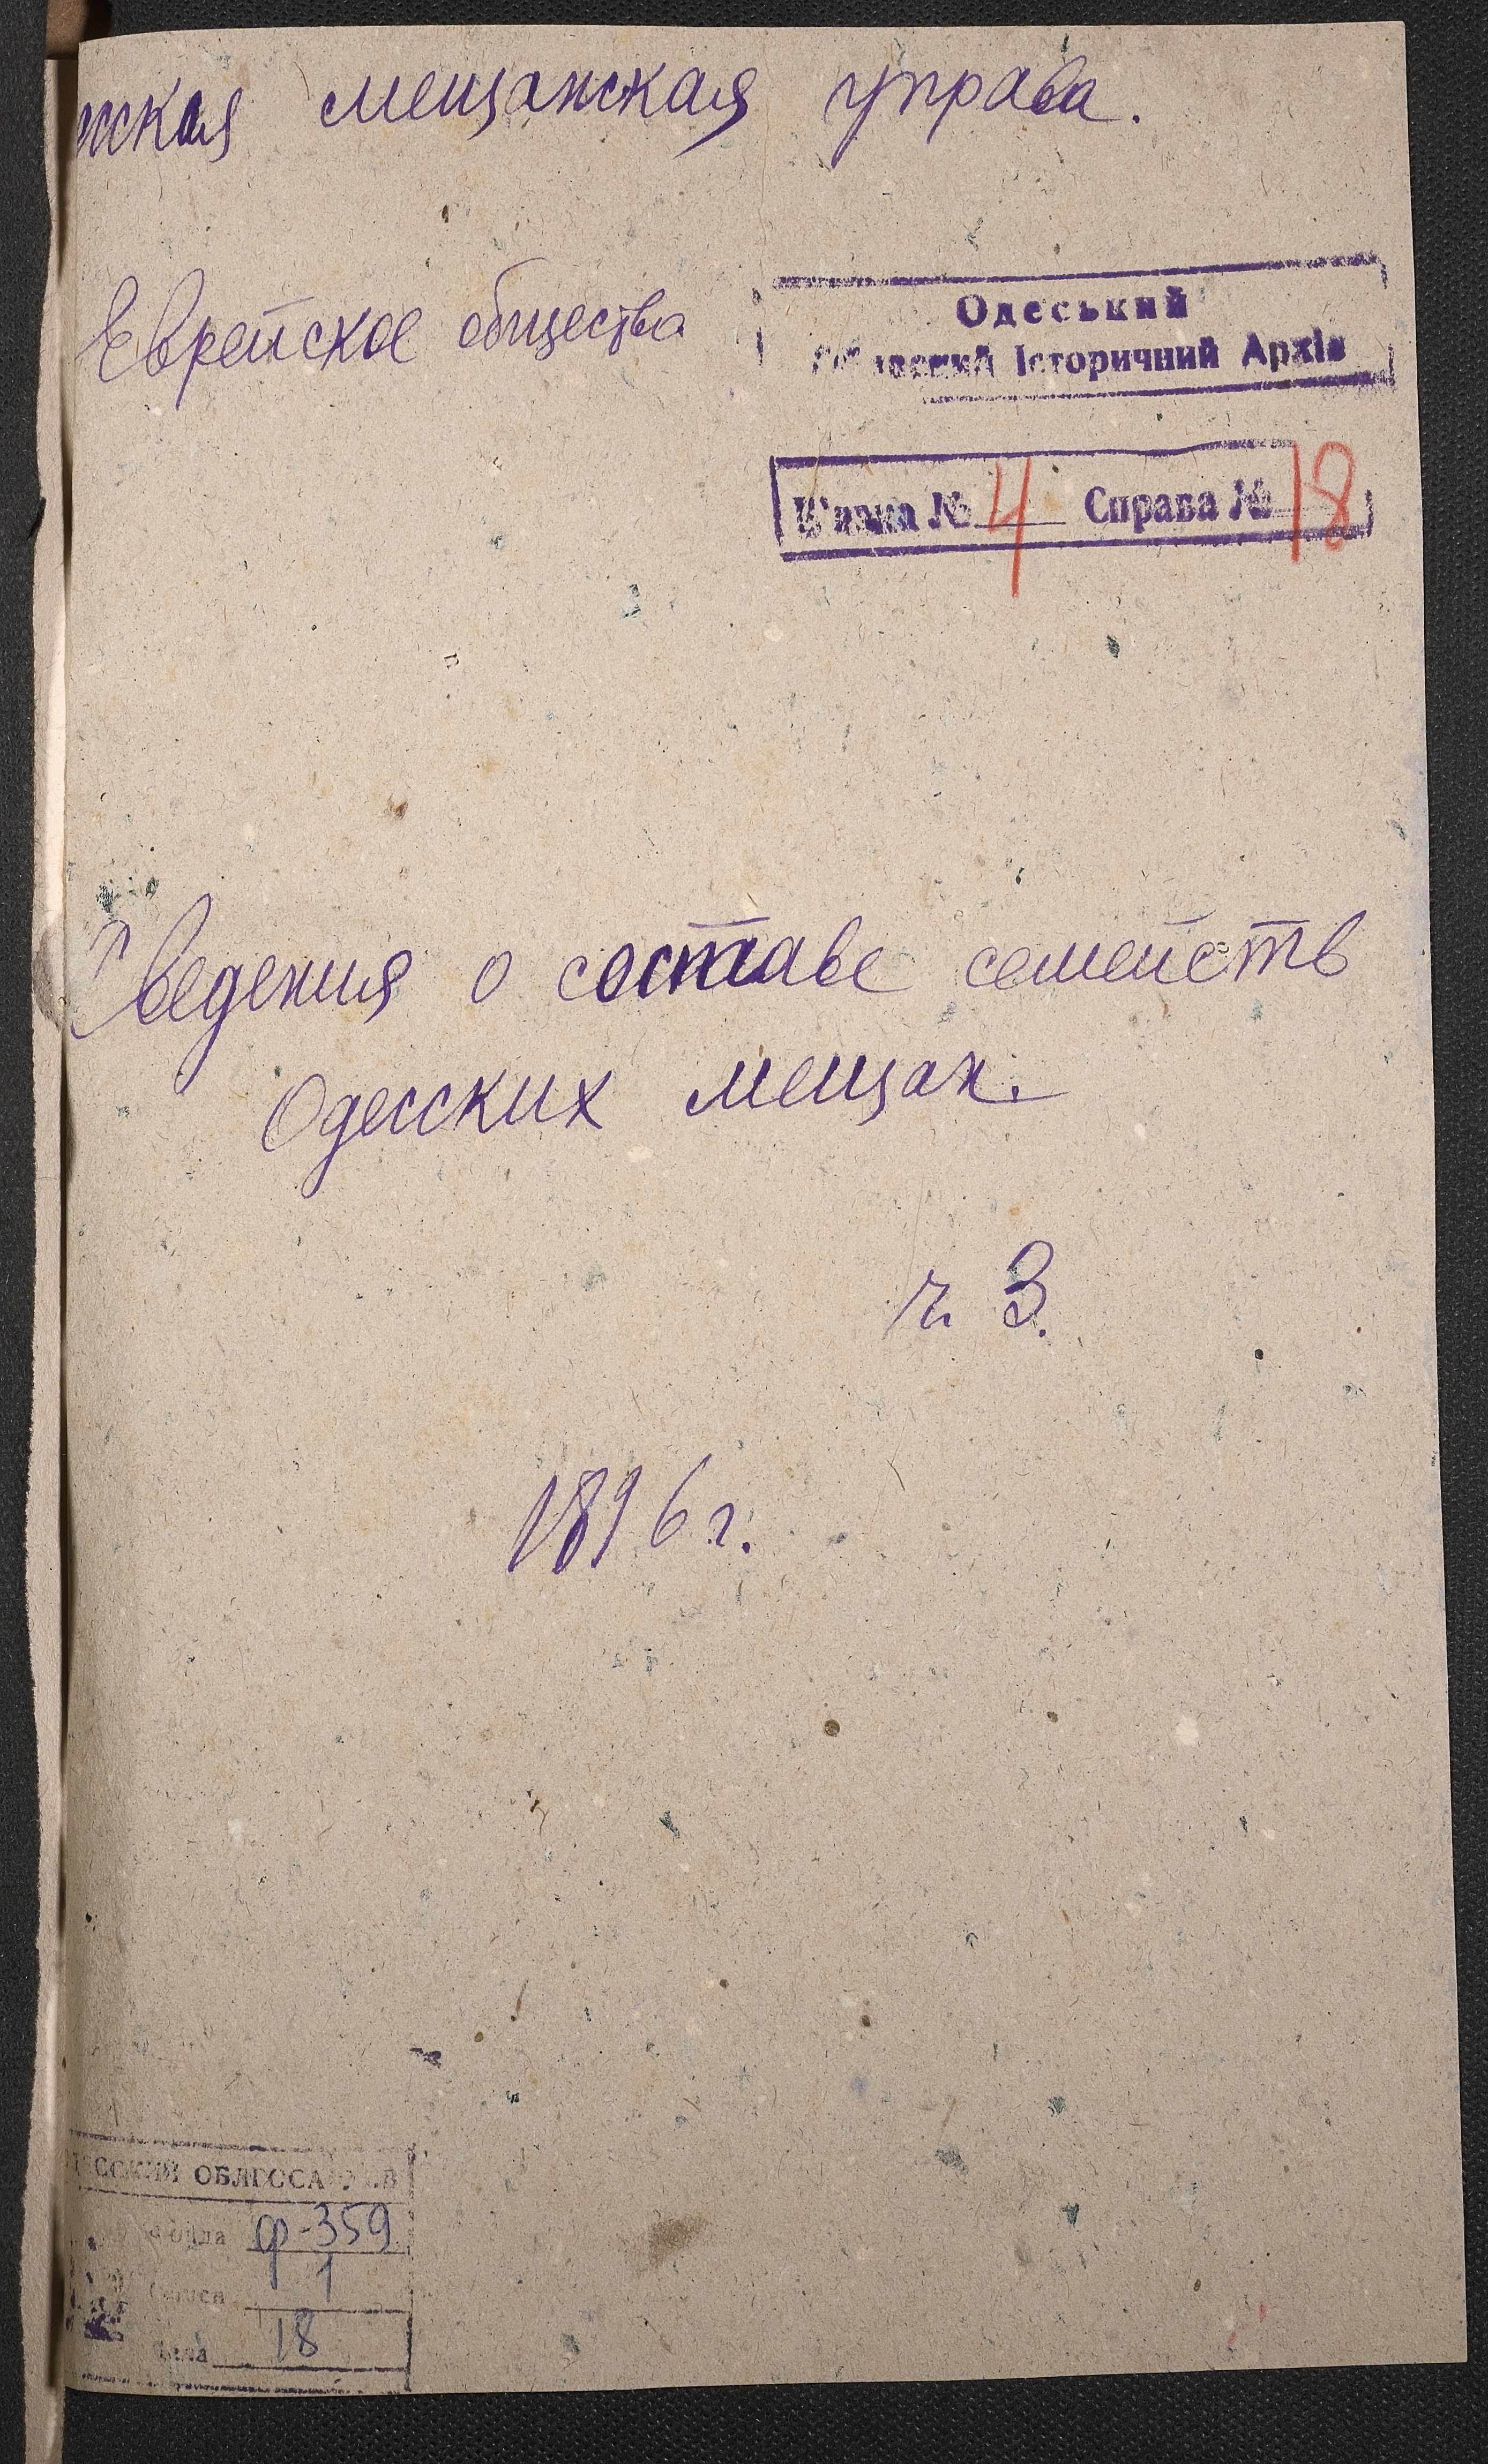 сская мещанская управа.
Еврейское общество
Одеський
Історичний Архів
№ 4 Справа № 18
Сведения о составе семейств
Одесских мещан.
ч. 3.
1896 г.
ОБЛГОСА
ф-359
1
18